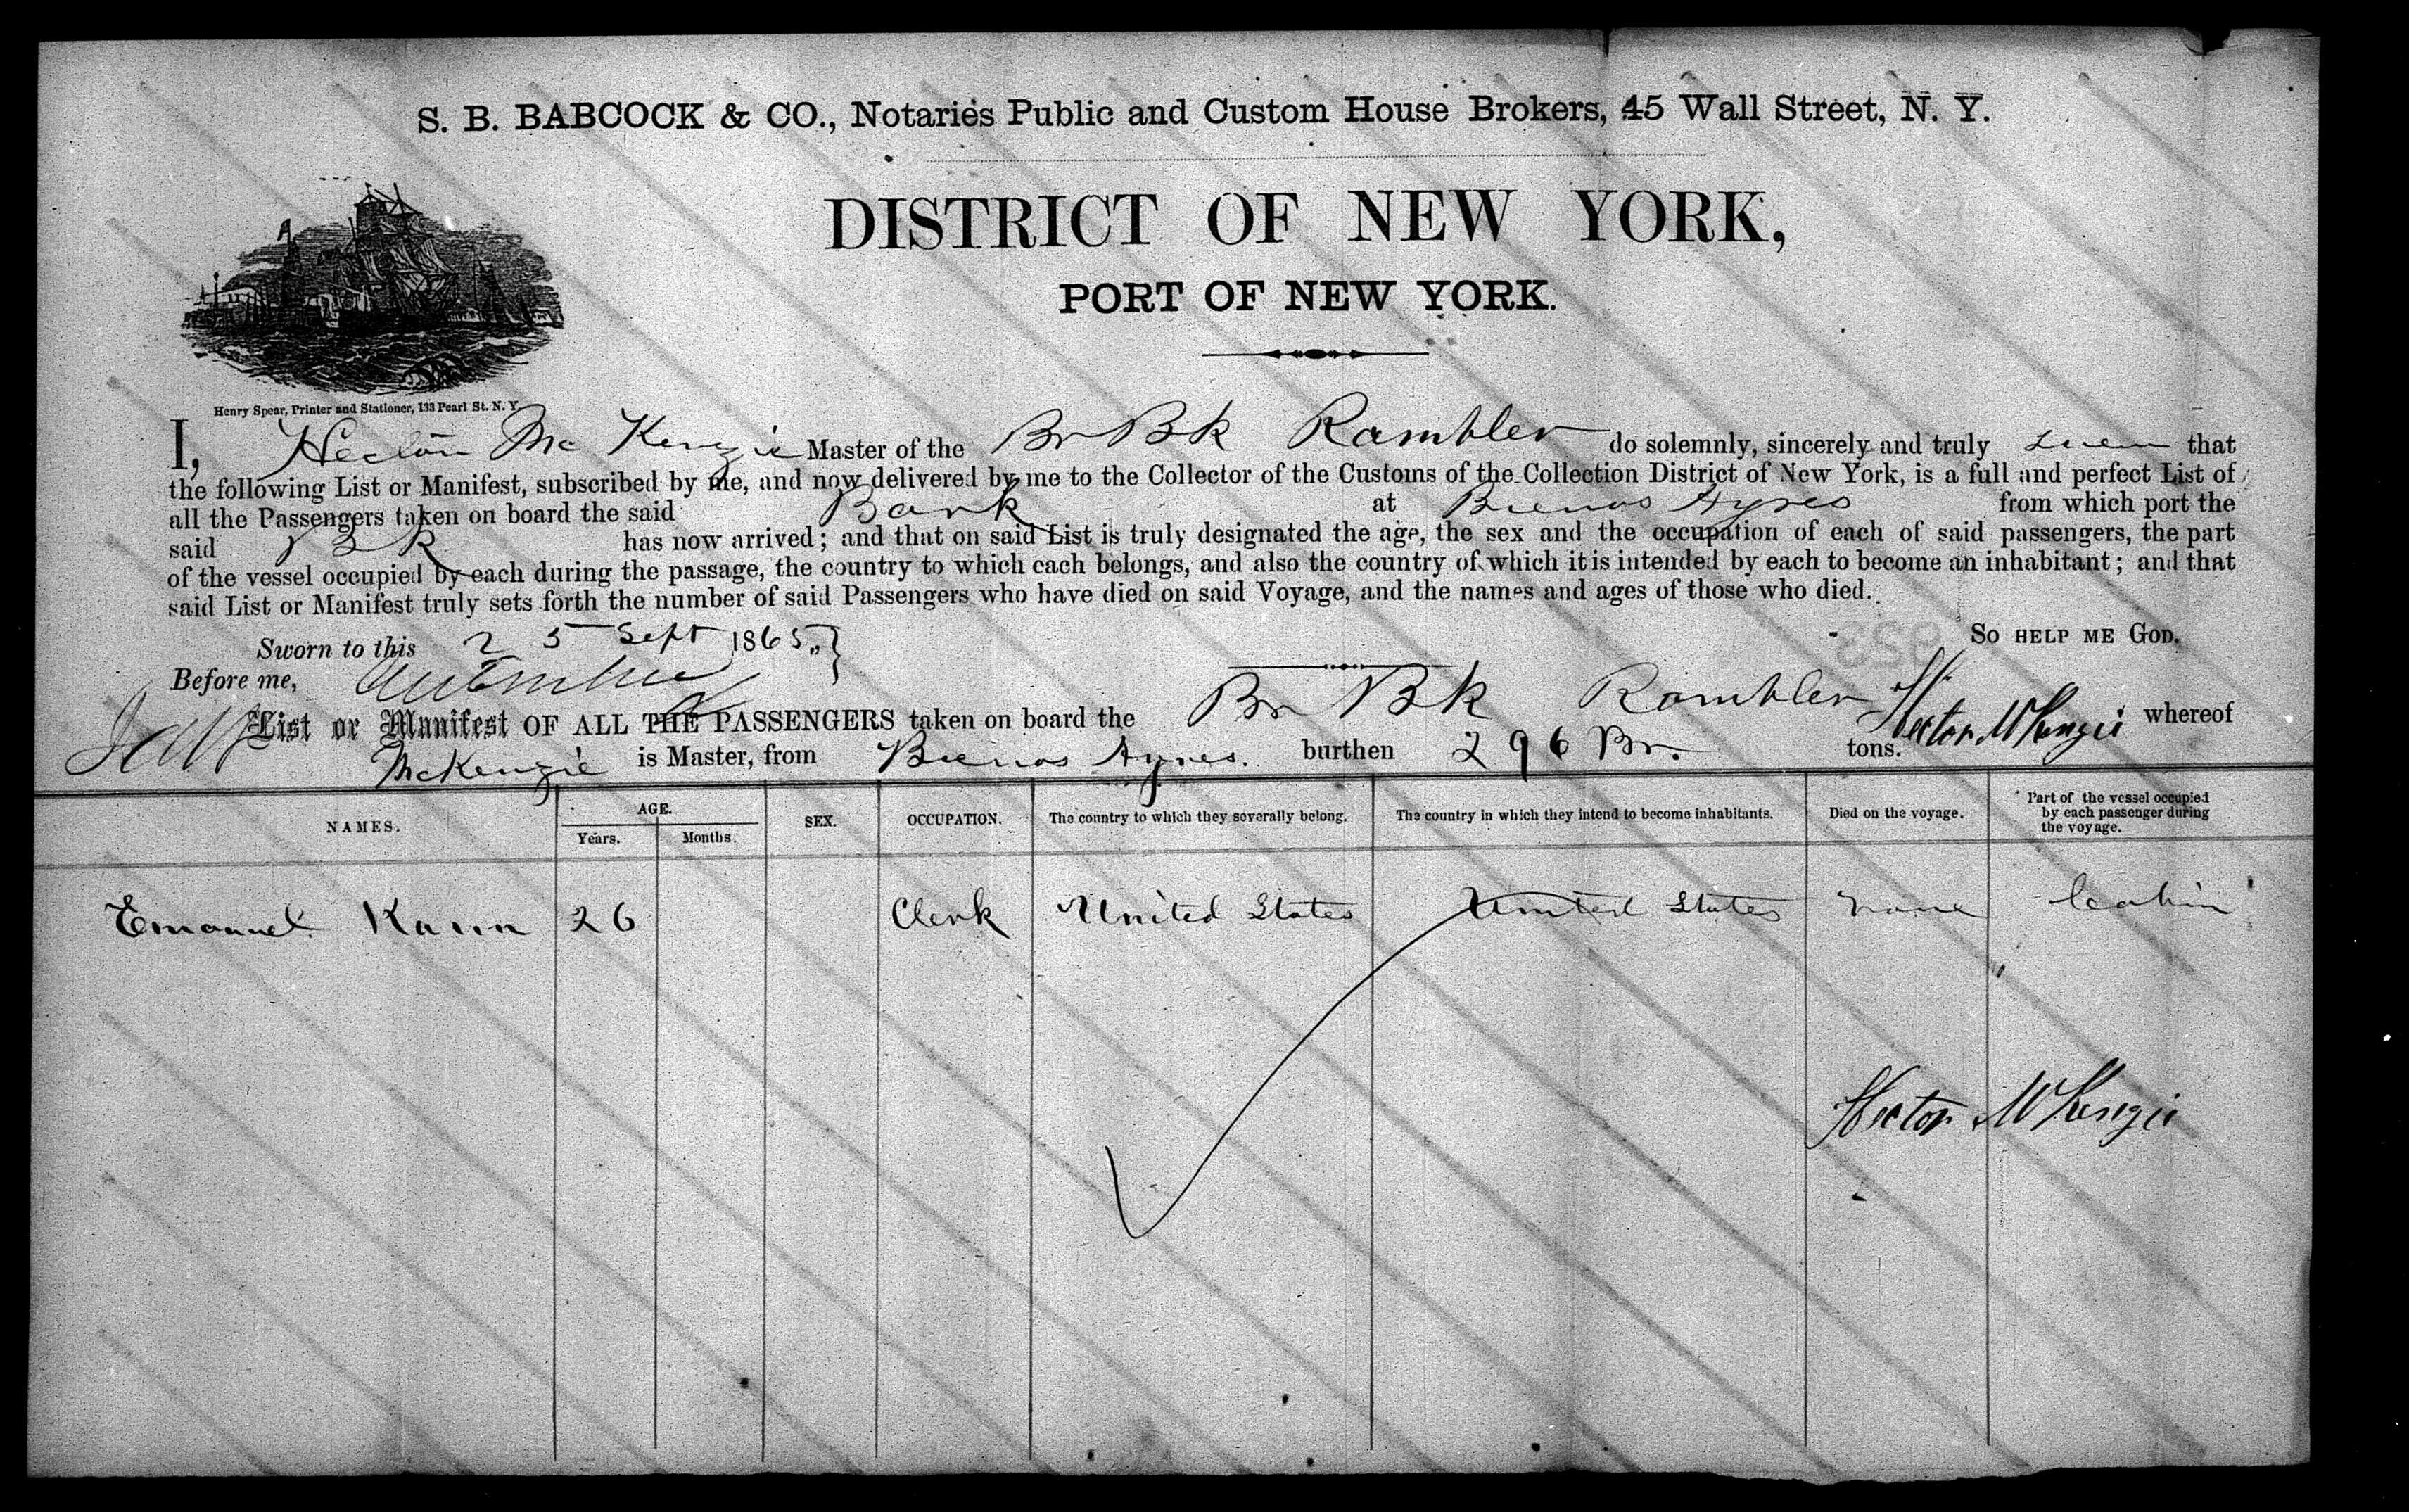 S. B. BABCOCK & CO., Notaries Public and Custom House Brokers, 45 Wall Street, N. Y.
DISTRICT OF NEW YORK,
PORT OF NEW YORK.
Henry Spear, Printer and Stationer, 133 Pearl St. N. Y.
I, Hector Mc Kenzie Master of the Br Bk Rambler do solemnly, sincerely and truly swear that
the following List or Manifest, subscribed by me, and now delivered by me to the Collector of the Customs of the Collection District of New York, is a full and perfect List of
all the Passengers taken on board the said Bark at Buenos Ayres from which port the
said Bk has now arrived; and that on said List is truly designated the age, the sex and the occupation of each of said passengers, the part
of the vessel occupied by each during the passage, the country to which each belongs, and also the country of which it is intended by each to become an inhabitant; and that
said List or Manifest truly sets forth the number of said Passengers who have died on said Voyage, and the names and ages of those who died.
Sworn to this 25 Sept 1865 So HELP ME GOD.
Before me,
Hector McKenzie
List or Manifest OF ALL THE PASSENGERS taken on board the Br Bk Rambler whereof
McKenzie is Master, from Buenos Ayres. burthen 296 Br. tons.
NAMES. AGE. Years. Months. SEX. OCCUPATION. The country to which they severally belong. The country in which they intend to become inhabitants. Died on the voyage. Part of the vessel occupied by each passenger during the voyage.
Emanuel Kann 26 Clerk United States United States none Cabin
Hector McKenzie